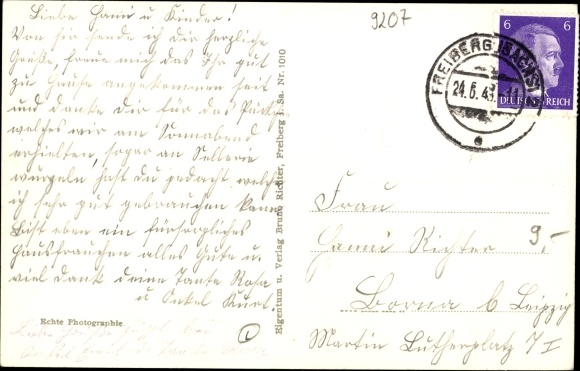 Liebe Hanni u. Kinder!
Von hier sende ich dir herzliche
Grüße, freue mich das Ihr gut
zu Hause angekommen seit
und danke dir für das Päckchen
welches wir am Sonnabend
erhielten, sogar an Sellerie
wurzeln hast du gedacht, welche
ich sehr gut gebrauchen kann
bist eben ein fürsorgliches
Hausfrauchen alles Gute u.
viel Dank deine Tante Rosa
u Onkel Kurt
Echte Photographie
Eigentum u. Verlag Bruno Richter, Freiberg i. Sa. Nr. 1010
9207
FREIBERG (SACHS)
24.6.43
6 6
DEUTSCHES REICH
Frau
Hanni Richter
9.-
Borna b Leipzig
Martin Lutherplatz 7 I